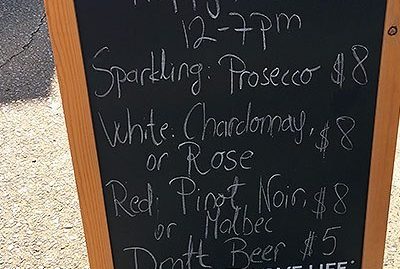 Happy
12-7pm
Sparkling: Prosecco $8
White: Chardonnay, $8
or Rose
Red: Pinot Noir, $8
or Malbec
Draft Beer $5
LIFE: